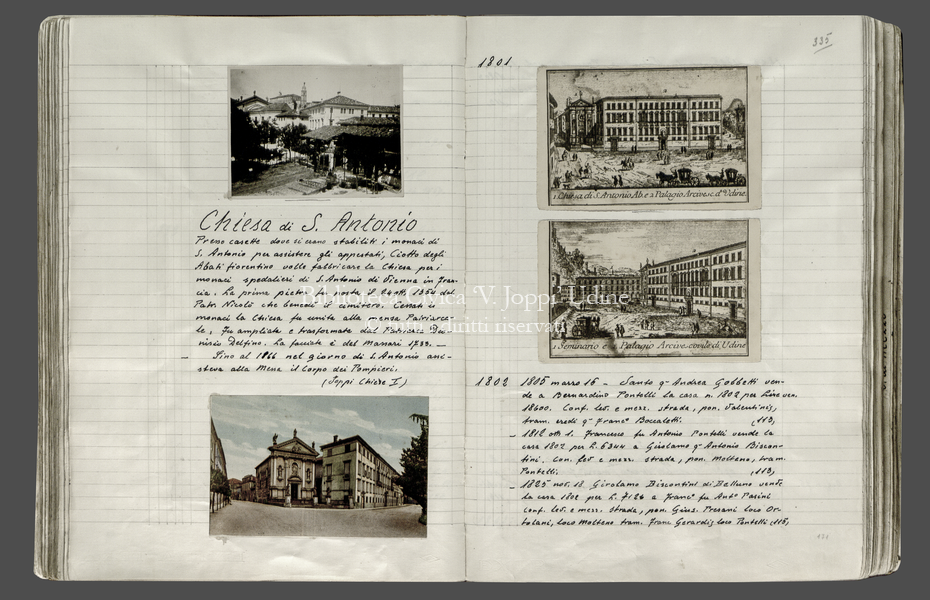 Chiesa di S. Antonio
Presso casette dove si erano stabiliti i monaci di
S. Antonio per assistere gli appestati, Ciotto degli
Abati fiorentino volle fabbricare la Chiesa per i
monaci spedalieri di S. Antonio di Vienna in Fran-
cia. La prima pietra fu posta il 1354 dal
Patr. Nicolò che benedì il cimitero. Cessati i
monaci la Chiesa fu unita alla mensa Patriarca-
le, fu ampliata e trasformata dal Patriarca Dio-
nisio Delfino. La facciata è del Massari 1733. —
— Fino al 1866 nel giorno di S. Antonio assi-
steva alla Messa il Corpo dei Pompieri.
(Joppi Chiese I)
335
1801
1. Chiesa di S. Antonio Ab. e 2 Palagio Arcivesc. d'Udine.
1 Seminario e 2 Palagio Arcivescovile di Udine
1802 1805 marzo 16 – Santo q.m Andrea Gobbetti ven-
de a Bernardino Pontelli la casa n. 1802 per Lire ven.
18600. Conf. lev. e mezz. strada, pon. Valentinis,
tram. eredi q.m Franc.o Boccaletti. (113)
– 1812 ott. 1. Francesco fu Antonio Pontelli vende la
casa 1802 per L. 6344 a Girolamo q.m Antonio Biscon-
tini. Con. lev. e mezz. strada, pon. Molteno, tram.
Pontelli. (113)
– 1825 nov. 18 Girolamo Biscontini di Belluno vende
la casa 1802 per L. 7126 a Franc.o fu Ant.o Pasini
conf. lev. e mezz. strada, pon. Gius. Presani loco Or-
tolani, loco Molteno tram. Franc. Gerardis loco Pontelli (115)
Biblioteca Civica "V. Joppi" Udine
© tutti i diritti riservati